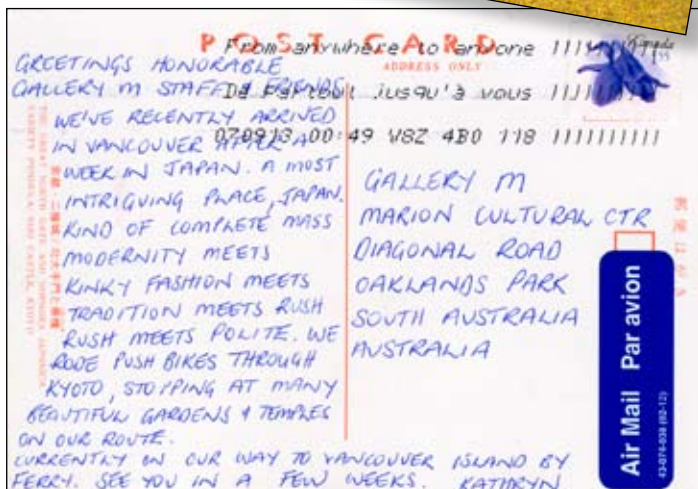 POST CARD
ADDRESS ONLY
From anywhere to anyone
De partout jusqu'à vous
070913 00:49 W8Z 4B0 118
Canada
GREETINGS HONORABLE
GALLERY M STAFF & FRIENDS
WE'VE RECENTLY ARRIVED
IN VANCOUVER AFTER A
WEEK IN JAPAN. A MOST
INTRIGUING PLACE, JAPAN.
KIND OF COMPLETE MASS
MODERNITY MEETS
KINKY FASHION MEETS
TRADITION MEETS RUSH
RUSH MEETS POLITE. WE
RODE PUSH BIKES THROUGH
KYOTO, STOPPING AT MANY
BEAUTIFUL GARDENS & TEMPLES
ON OUR ROUTE.
CURRENTLY ON OUR WAY TO VANCOUVER ISLAND BY
FERRY. SEE YOU IN A FEW WEEKS. KATHRYN
GALLERY M
MARION CULTURAL CTR
DIAGONAL ROAD
OAKLANDS PARK
SOUTH AUSTRALIA
AUSTRALIA
Air Mail Par avion
43-074-038 (92-12)